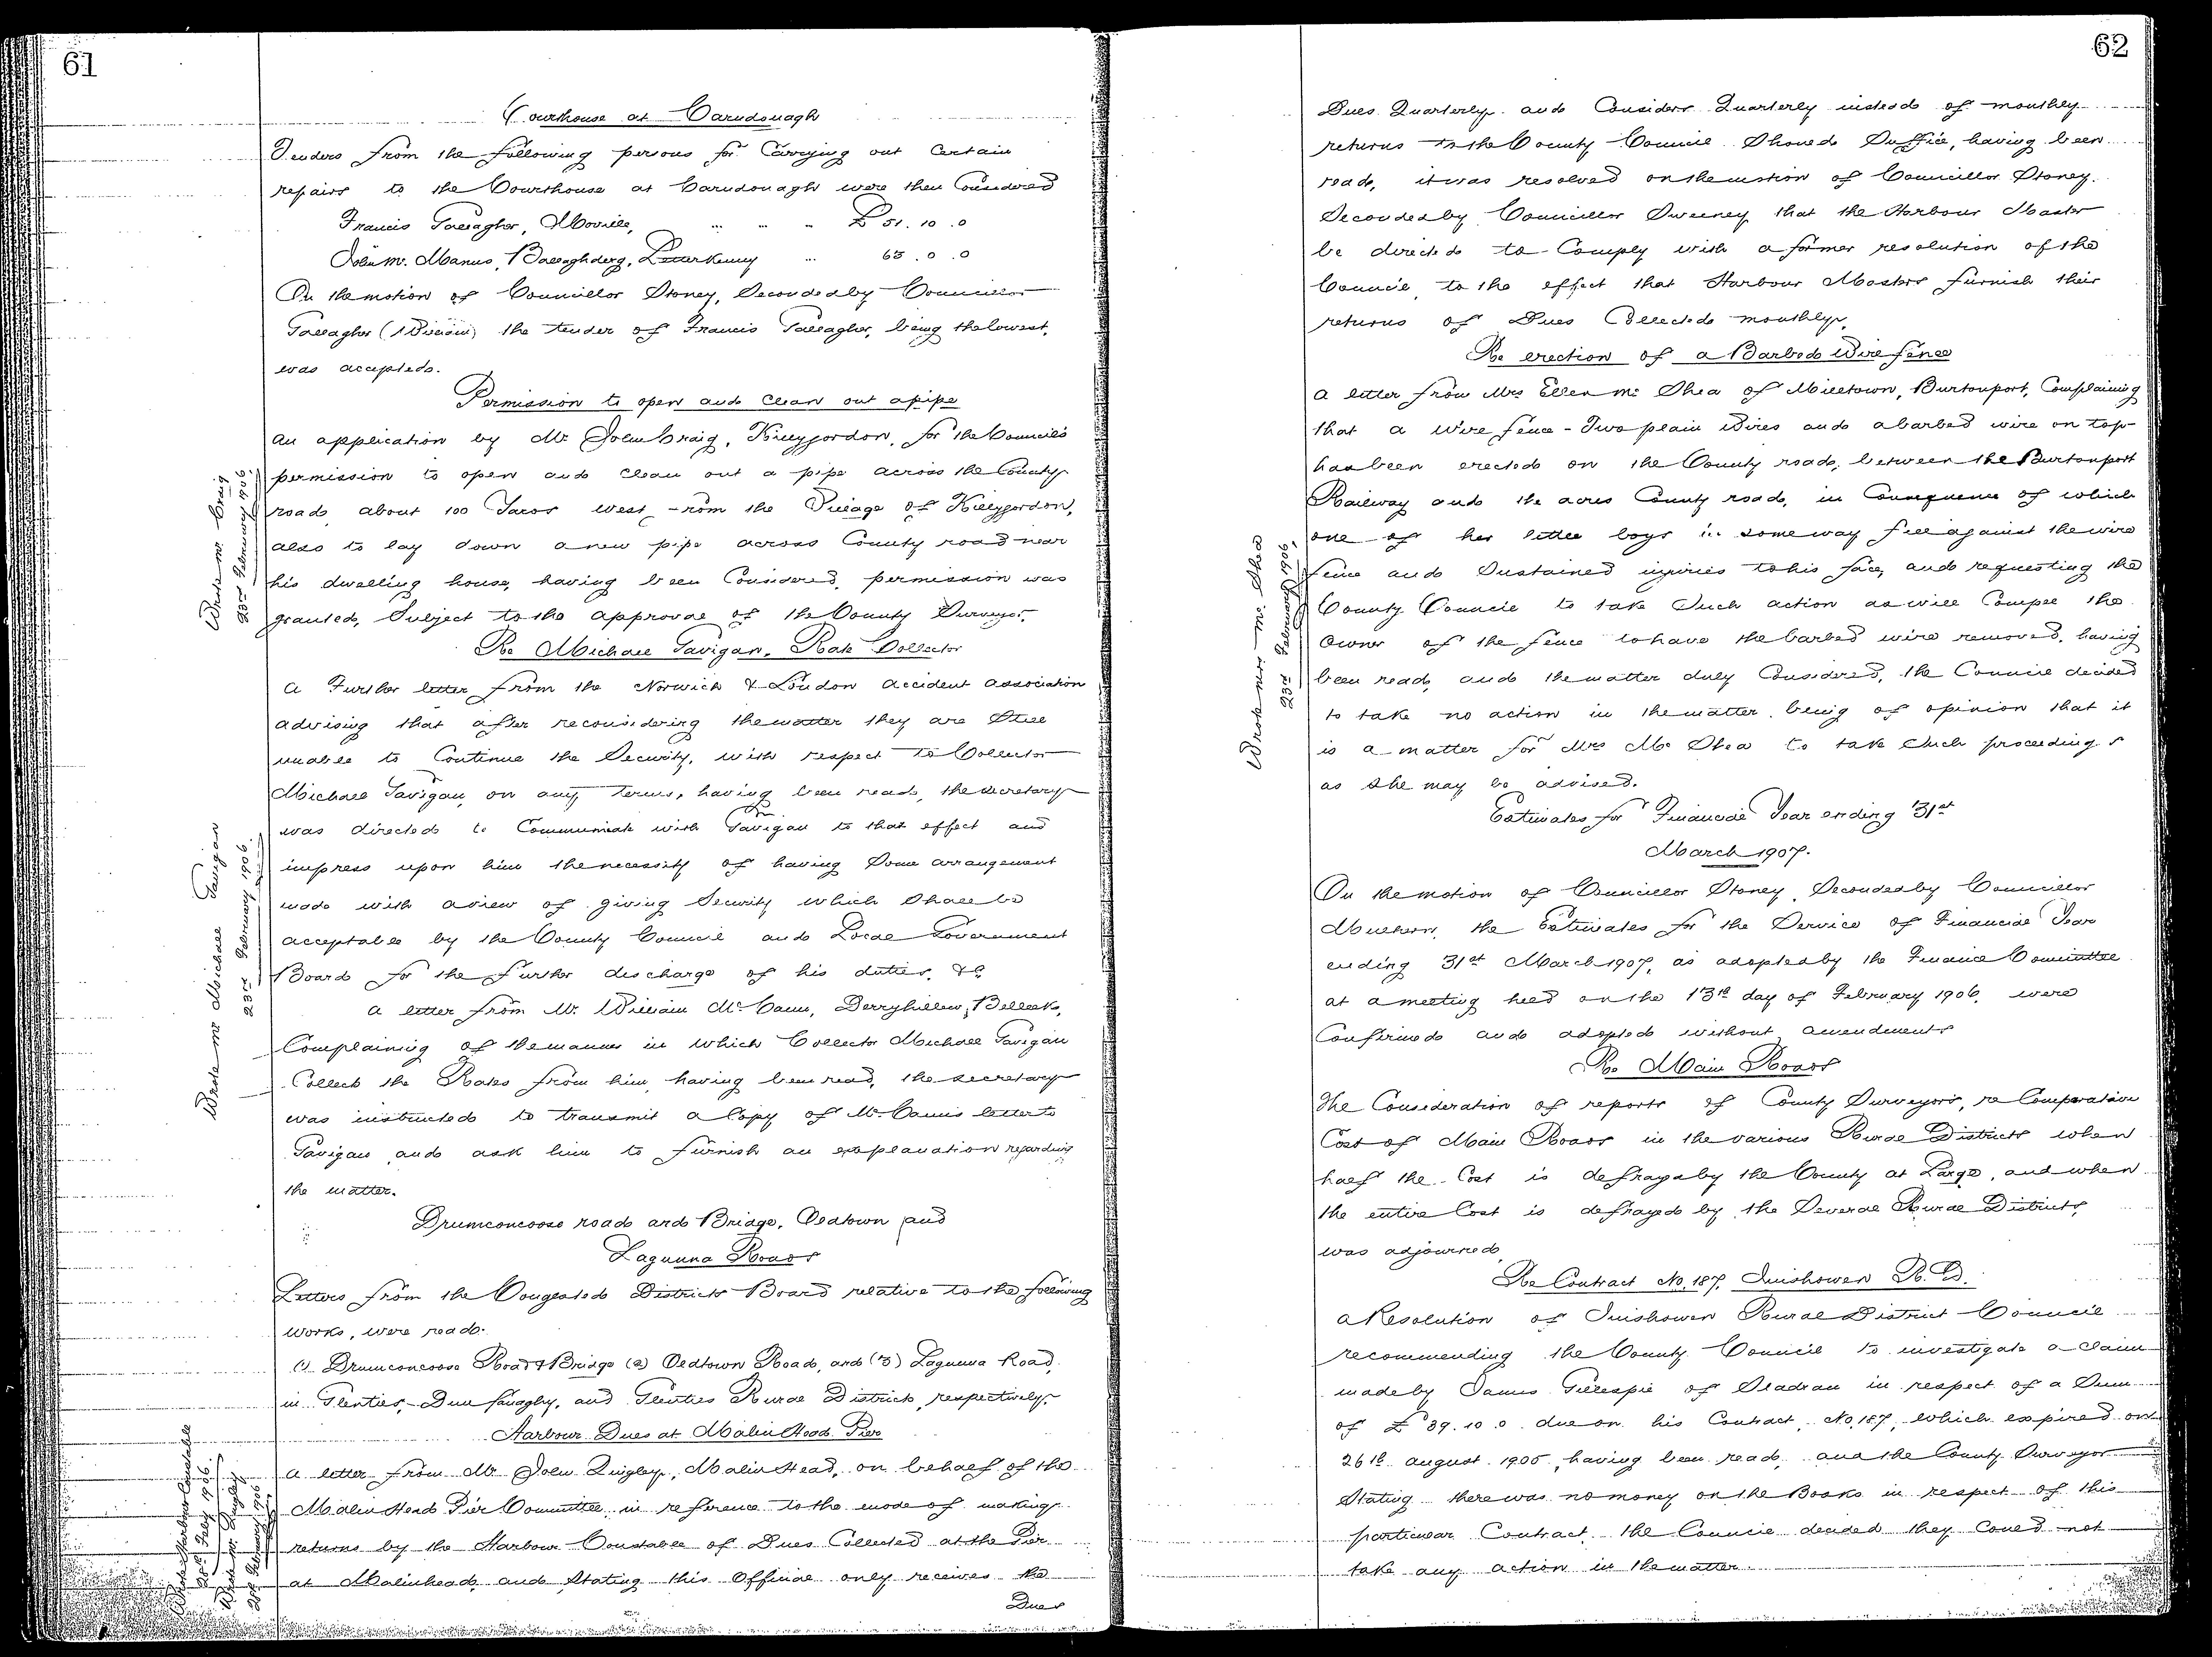 61
Courthouse at Carndonagh
Tenders from the following persons for Carrying out Certain
repairs to the Courthouse at Carndonagh were then Considered
Francis Gallagher, Moville, ... ... .. £51.10.0
John McManus, Ballaghderg, Letterkenny ... 65.0.0
On the motion of Councillor Stoney, Seconded by Councillor
Gallagher (William) the tender of Francis Gallagher, being the lowest,
was accepted.
Permission to open and clean out a pipe
An application by Mr John Craig, Killygordon, for the Council's
permission to open and clean out a pipe across the County
road, about 100 Yards West from the Village of Killygordon,
also to lay down a new pipe across County road near
his dwelling house, having been Considered, permission was
granted, Subject to the approval of the County Surveyor.
Wrote Mr Craig
23rd February 1906.
Re Michael Gavigan, Rate Collector
A Further letter from the Norwich & London Accident Association
advising that after reconsidering the matter they are Still
unable to Continue the Security, with respect to Collector
Michael Gavigan, on any terms, having been read, the secretary
was directed to Communicate with Mr Gavigan to that effect and
impress upon him the necessity of having Some arrangement
made with a view of giving Security which Shall be
acceptable by the County Council and Local Government
Board for the further discharge of his duties, &c.
Wrote Mr Michael Gavigan
23rd February 1906.
A letter from Mr. William McCann, Derryhillow, Belleek,
Complaining of the manner in which Collector Michael Gavigan
Collects the Rates from him, having been read, the secretary
was instructed to transmit a Copy of McCann's letter to
Gavigan and ask him to furnish an explanation regarding
the matter.
Drumconcoose road and Bridge, Oldtown and
Lagunna Roads
Letters from the Congested Districts Board relative to the following
works, were read.
(1) Drumconcoose Road & Bridge (2) Oldtown Road, and (3) Lagunna Road,
in Glenties, Dunfanaghy, and Glenties Rural Districts, respectively.
Harbour Dues at Malin Head Pier
A letter from Mr John Quigley, Malin Head, on behalf of the
Malin Head Pier Committee, in reference to the mode of making
returns by the Harbour Constable of Dues Collected at the Pier
at Malinhead, and Stating this Official only receives the
Dues
Wrote Harbour Constable
Feby 1906
Wrote Mr Quigley
February 1906
62
Dues Quarterly and Considers Quarterly instead of monthly
returns to the County Council Should Suffice, having been
read, it was resolved on the motion of Councillor Stoney,
Seconded by Councillor Sweeney, that the Harbour Master
be directed to Comply with a former resolution of the
Council, to the effect that Harbour Masters furnish their
returns of Dues Collected monthly.
Re erection of a Barbed Wire fence
A letter from Mrs Ellen McShea of Milltown, Burtonport, Complaining
that a Wire fence - Two plain Wires and a barbed wire on top -
has been erected on the County road, between the Burtonport
Railway and the acres County road, in Consequence of which
one of her little boys in some way fell against the wire
fence and Sustained injuries to his face, and requesting the
County Council to take Such action as will Compel the
Owner of the fence to have the barbed wire removed, having
been read, and the matter duly Considered, the Council decided
to take no action in the matter, being of opinion that it
is a matter for Mrs McShea to take Such proceedings
as She may be advised.
Wrote Mrs McShea
23rd February 1906.
Estimates for Financial Year ending 31st
March 1907.
On the motion of Councillor Stoney, Seconded by Councillor
Mulhern, the Estimates for the Service of Financial Year
ending 31st March 1907, as adopted by the Finance Committee
at a meeting held on the 13th day of February 1906, were
Confirmed and adopted without amendments
Re Main Roads
The Consideration of reports of County Surveyors, re Comparative
Cost of Main Roads in the various Rural Districts when
half the Cost is defrayed by the County at Large, and when
the entire Cost is defrayed by the Several Rural Districts,
was adjourned.
Re Contract No. 187, Inishowen R.D.
A Resolution of Inishowen Rural District Council
recommending the County Council to investigate a claim
made by James Gillespie of Sladran in respect of a Sum
of £39.10.0 due on his Contract, No. 187, which expired on
26th August 1905, having been read, and the County Surveyor
Stating there was no money on the Books in respect of this
particular Contract, the Council decided they Could not
take any action in the matter.